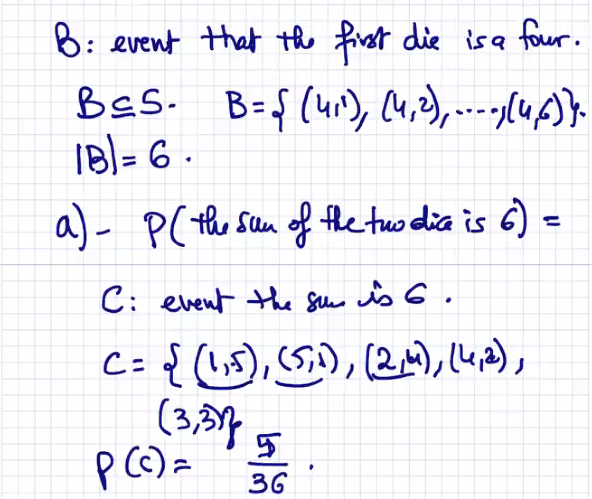 B: event that the first die is a four.
B ⊆ S. B = { (4,1), (4,2), ...., (4,6) }.
|B| = 6.
a) - P( the sum of the two dice is 6) =
C: event the sum is 6.
C = { (1,5), (5,1), (2,4), (4,2),
(3,3) }
P(C) = 5/36.